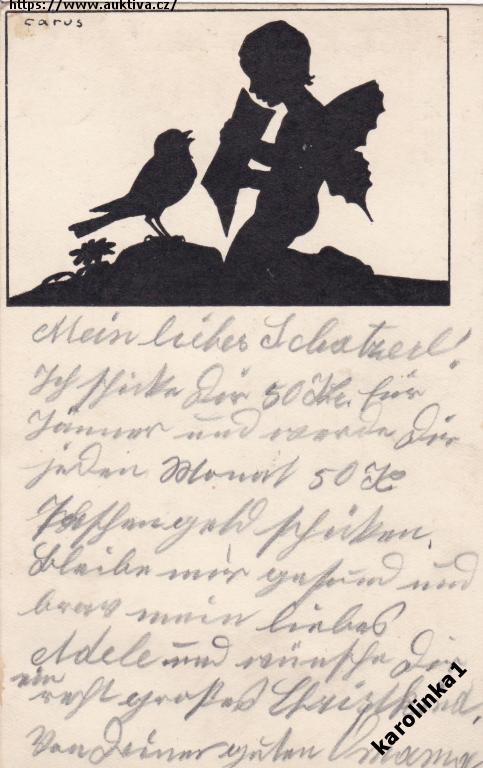 https://www.auktiva.cz/
carus
Mein liebes Schatzerl!
Ich schicke Dir 50 Kč für
Jänner und werde Dir
jeden Monat 50 Kč
Taschengeld schicken.
Bleibe mir gesund und
brav mein liebes
Adele und wünsche Dir
ein
recht großes Christkind.
Von Deiner guten Mama
karolinka1